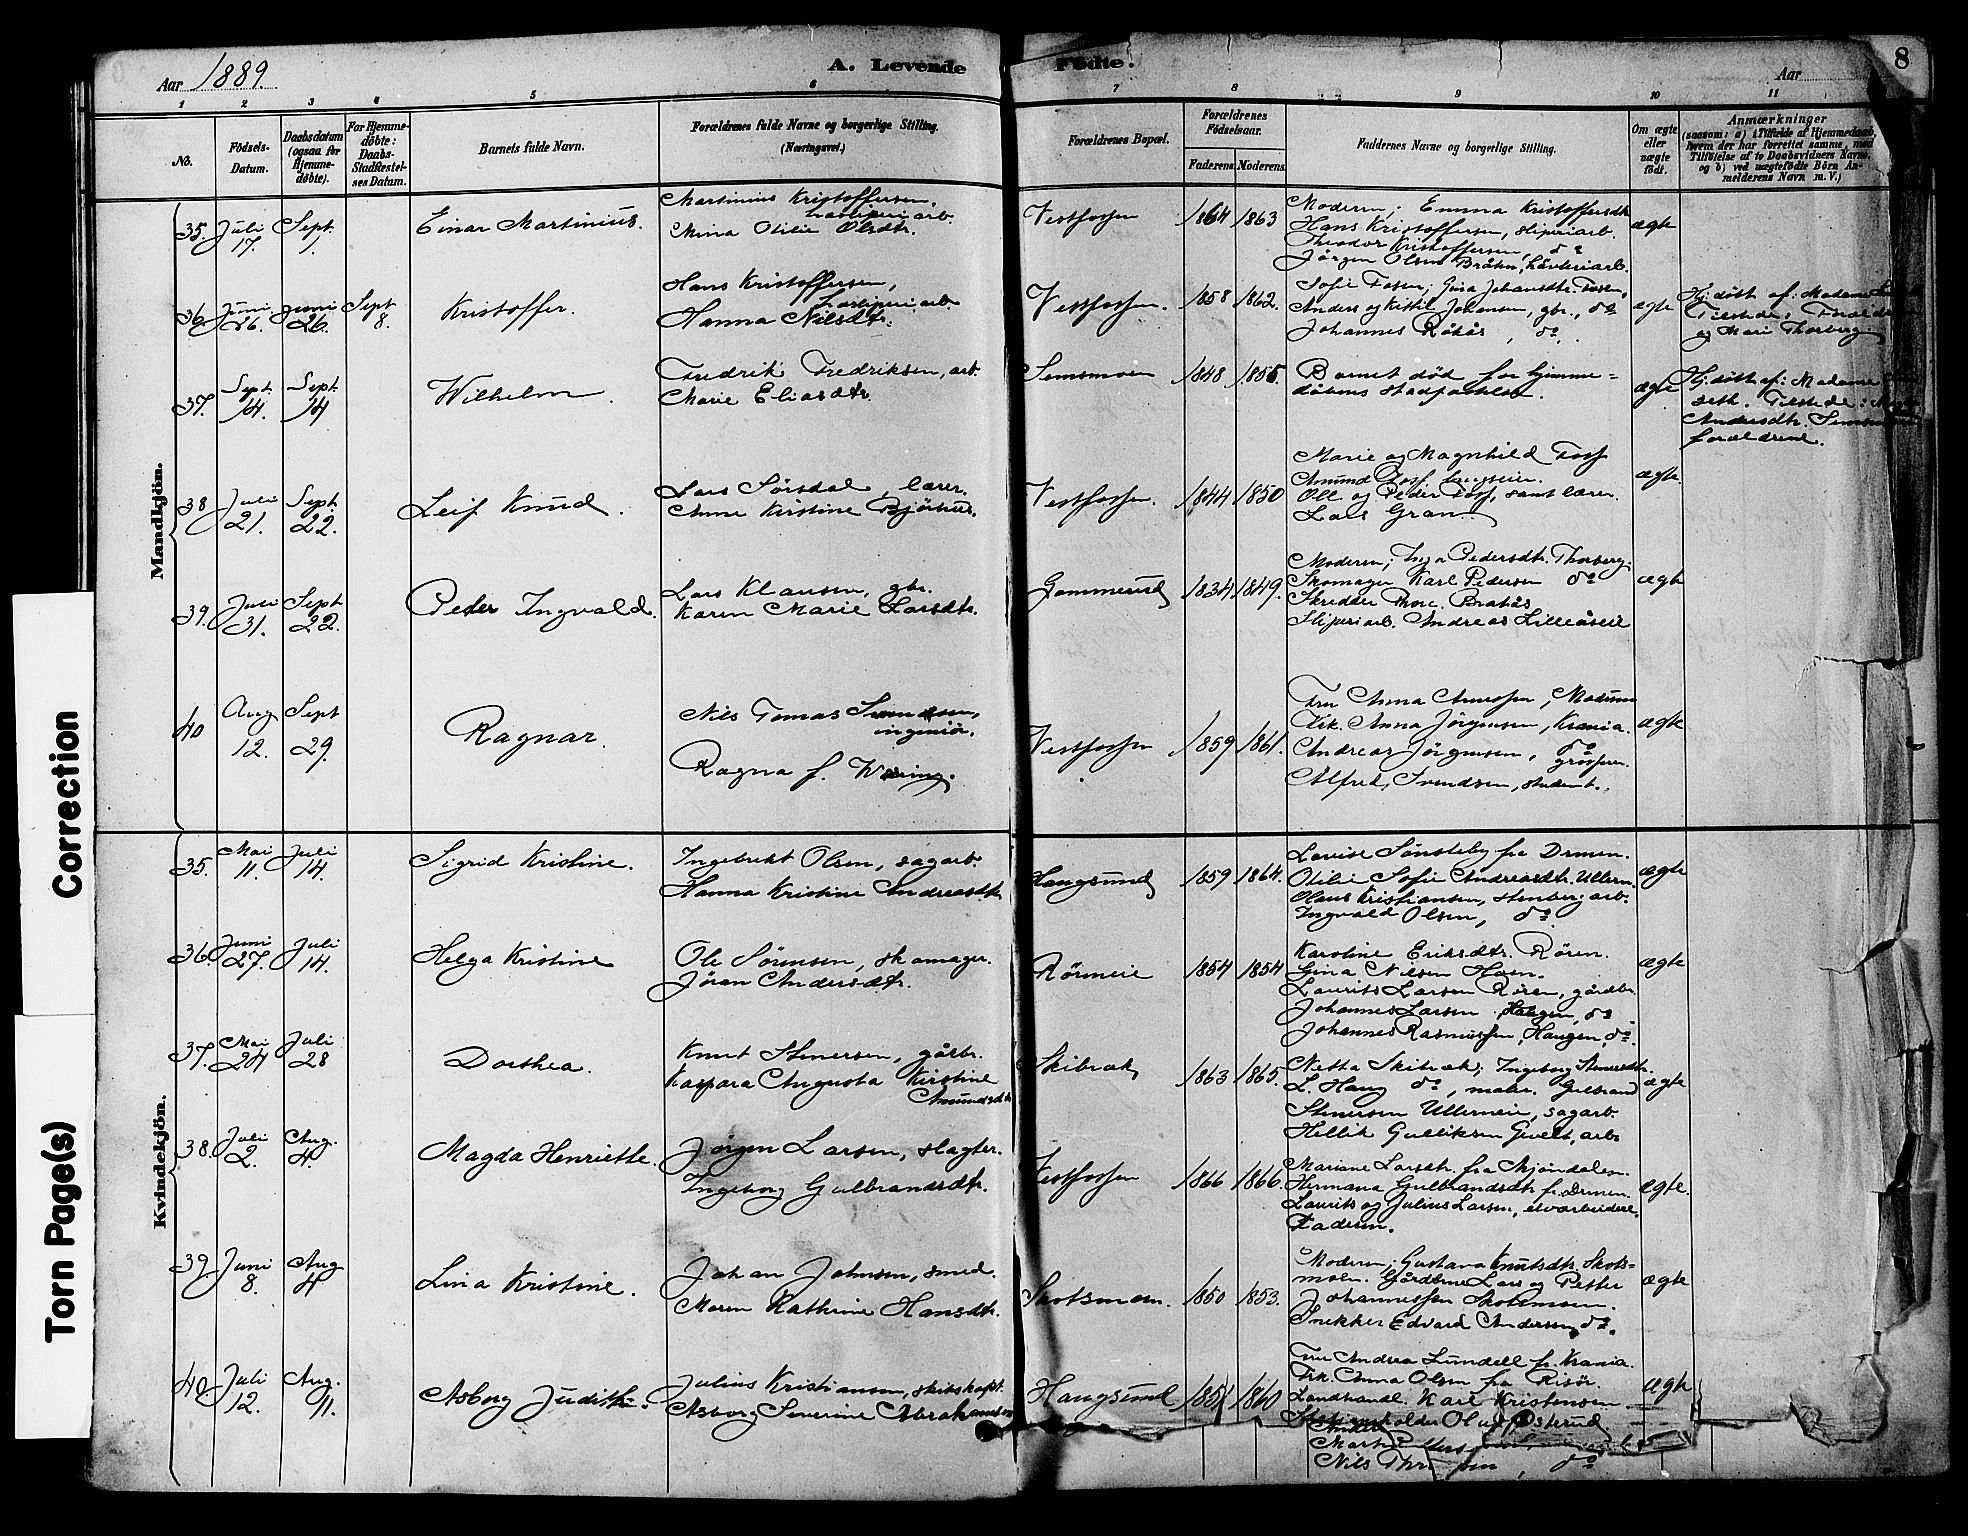 Aar 1889.
A. Levende Fødte.
Aar
8
1 2 3 4 5 6 7 8 9 10 11
No.
Fødsels-Datum.
Daabsdatum (ogsaa for Hjemme-døbte).
For Hjemme-døbte: Daabs-Stadfæstel-ses Datum.
Barnets fulde Navn.
Forældrenes fulde Navne og borgerlige Stilling.
(Næringsvei.)
Forældrenes Bopæl.
Forældrenes Fødselsaar.
Faderens Moderens
Faddernes Navne og borgerlige Stilling.
Om ægte eller uægte født.
Anmærkninger
(saasom: a) i Tilfælde af Hjemmedaab,
hvem der har forrettet samme, med
Tilføielse af to Daabsvidners Navne,
og b) ved uægtefødte Børn An-
melderens Navn m. V.)
Mandkjøn.
35. Juli 17. Sept. 1. Einar Martinius. Martinius Kristoffersen, arb. Mina Otilie Olsdtr. Vestfossen 1864 1863 ægte
Moderen; Emma Kristoffersdtr.
Hans Kristoffersen, sliperiarb.
Theodor Kristoffersen, do
Jørgen Olsen Bråten,
36 Juni 26. Juni 26. Sept 8. Kristoffer. Hans Kristoffersen, arb. Hanna Nilsdtr. Vestfossen. 1858 1862. ægte
Sofie Fossen; Gina Johansdtr. Fossen,
Anders og Kittil Johansen, gbr., do
Johannes Rökås, do.
Hj. døbt af: Madame
Tilstede:
og Mari Thorberg.
37. Sept. 14. Sept. 14 Wilhelm. Fredrik Fredriksen, arb. Marie Eliasdtr. Semsmoen 1848 1855. ægte
Barnet død før hjemme-
dåbens stadfæstelse.
Hj. døbt af: Madame
Tilstede:
Andersdtr.
forældrene.
38 Juli 21. Sept. 22. Leif Knud. Lars Sørsdal, lærer. Anne Kirstine Bjørhus. Vestfossen. 1844 1850 ægte.
Marie og Magnhild Foss
Amund Foss,
Ole og Peder Foss, samt lærer
Lars Gran
39. Juli 31. Sept 22. Peder Ingvald. Lars Klausen, gbr. Karen Marie Larsdtr. Gommerud 1834 1849. ægte
Moderen; Inga Pedersdtr. Thorberg
Skomager Karl Pedersen do
Skredder Thore
Sliperiarb. Andreas Lilleåseie
40 Aug. 12. Sept 29. Ragnar. Nils Tomas Svendsen, ingeniør. Ragna f. Wæring. Vestfossen 1859 1861. ægte
Fru Anna Modum
Frk. Anna Jørgensen, Krania.
Andreas Jørgensen, do
Alfred Svendsen, student.
Kvindekjøn.
35. Mai 11. Juli 14. Sigrid Kristine. Ingebrikt Olsen, sagarb. Hanna Kristine Andreasdtr. Haugsund 1859 1864. ægte
Lovise Sønsteby fra Drmen.
Otilie Sofie Andreasdtr. Ullern.
Olaus Kristiansen,
Ingvald Olsen, do
36. Juni 27. Juli 14. Helga Kristine Ole Sørensen, skomager. Jøran Andersdtr. Rörmeie 1854 1854 ægte
Karoline Eriksdtr. Røren.
Gina Nilsen Hoen.
Laurits Larsen Røren, gårdbr.
Johannes Larsen Haugen, do
Johannes Rasmussen, Haugen, do.
37. Mai 24 Juli 28 Dorthea. Knut Stenersen, gårbr. Kaspara Augusta Kirstine Amundsdtr. Skibræk 1863 1865. ægte
Netta Skibræk; Ingeborg Stenersdtr.
L. Haug do, maler. Gulbrand
Stenersen Ullerneie, sagarb.
Hellik Gulliksen arb.
38. Juli 2. Aug. 4. Magda Henriette. Jørgen Larsen, slagter. Ingeborg Gulbrandsdtr. Vestfossen 1866 1866. ægte.
Mariane Larsdtr. fra Mjøndalen.
Hermana Gulbrandsdtr. fr. Drmen.
Laurits og Julius Larsen,
Faderen.
39. Juni 8. Aug 4 Lina Kristine. Johan Johnsen, smed. Maren Kathrine Hansdtr. Skotsmoen. 1850 1853. ægte
Moderen; Gustava Knutsdtr. Skots-
moen. Gårdbrne Lars og Petter
Johannessen Skotsmoen.
Snekker Edvard Andersen, do.
40 Juli 12. Aug. 11. Asborg Judith. Julius Kristiansen, Asborg Severine Haugsund 1860 ægte
Fru Andrea Lundell fr. Krania.
Frk. Anna Olsen fra Risør.
Landhandl. Karl Kristensen
Nils
do
Correction
Torn Page(s)